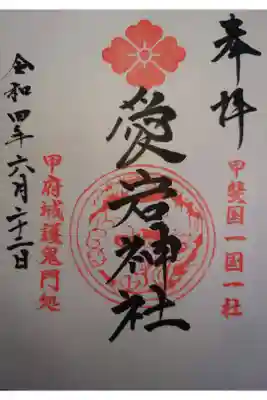 奉拝
甲斐国一國一社
愛宕神社
甲府城護鬼門処
令和四年六月二十二日